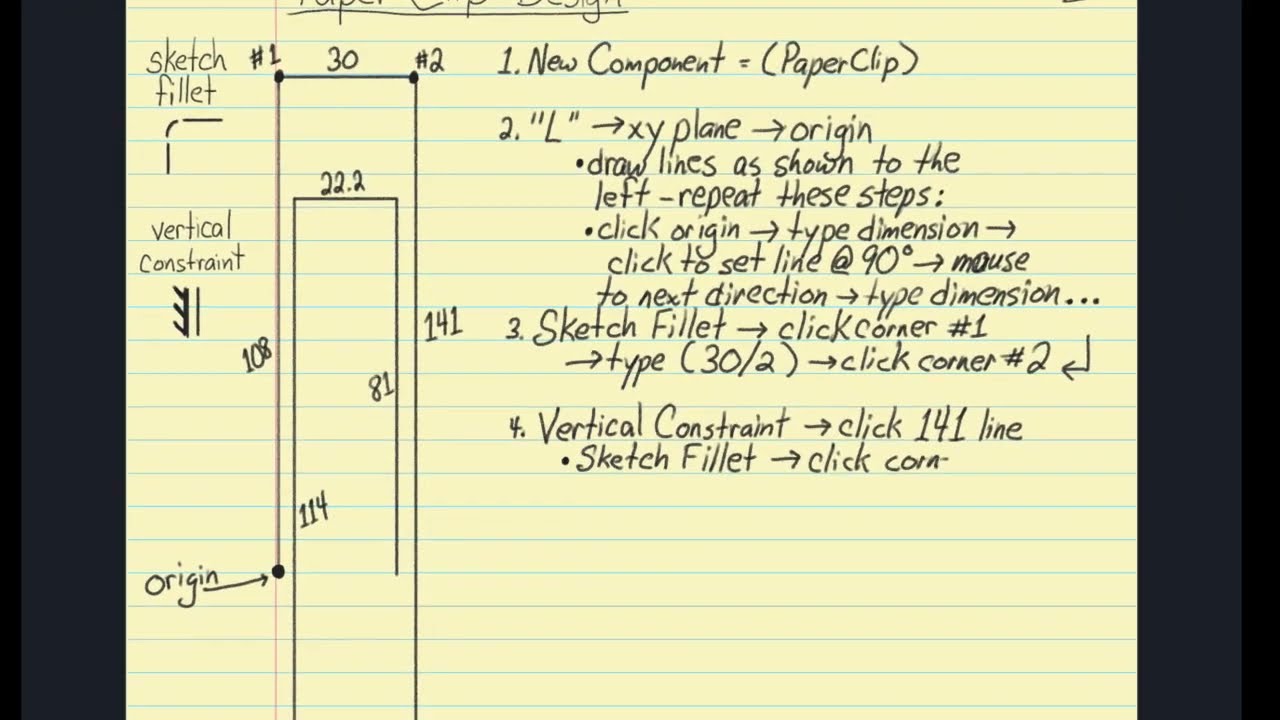 Paper Clip Design
sketch #1 30 #2
fillet
1. New Component = (PaperClip)
2. "L" → xy plane → origin
• draw lines as shown to the
left - repeat these steps:
22.2
vertical
constraint
• click origin → type dimension →
click to set line @ 90° → mouse
to next direction → type dimension...
141
108
81
114
3. Sketch Fillet → click corner #1
→ type (30/2) → click corner #2 ↵
4. Vertical Constraint → click 141 line
• Sketch Fillet → click corn
origin →